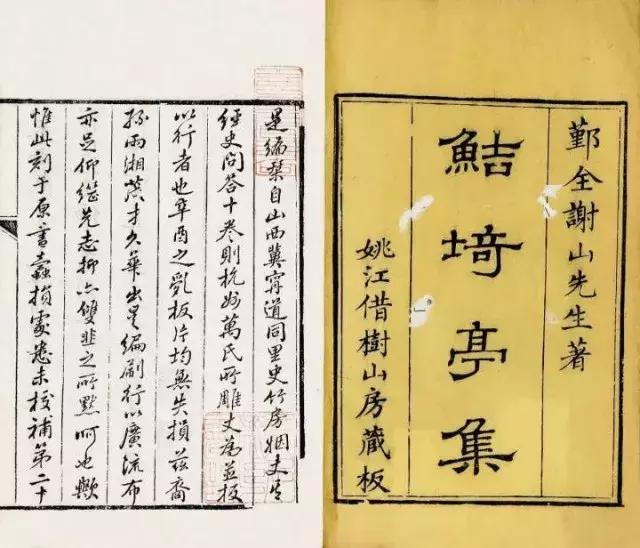 鄞全謝山先生著
鮚埼亭集
姚江借樹山房藏板
是編栞自山西冀甯道同里史竹房姻丈
經史問答十卷則杭萬氏所雕丈為並板
以行者也辛酉之亂板片均無失損茲裔
孫雨湘才久華出是編刷行以廣流布
亦足仰繼先志抑亦雙韭之所默呵也歟
惟此刻于原書蠹損處悉未校補第二十